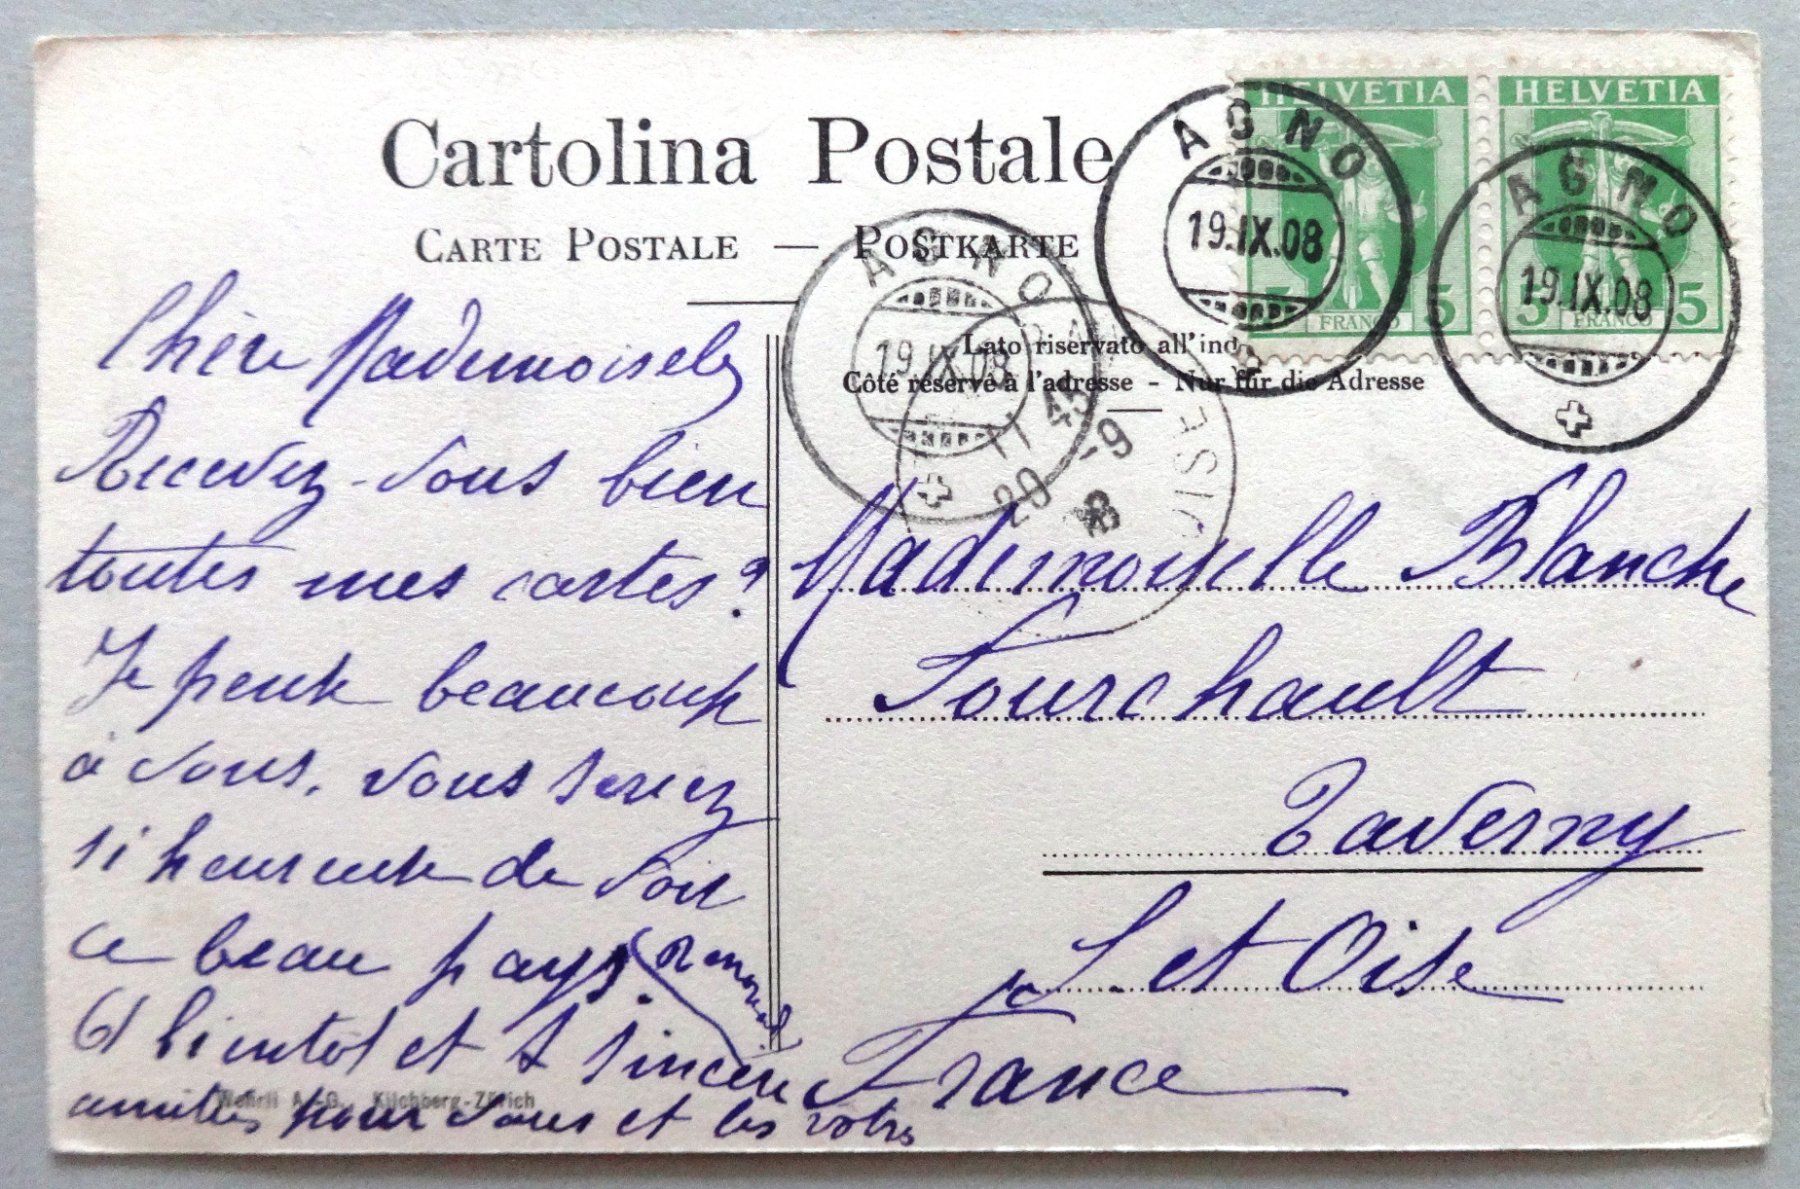 Cartolina Postale
CARTE POSTALE — POSTKARTE
Lato riservato all'ind
Côté réservé à l'adresse - Nur für die Adresse
HELVETIA
HELVETIA
5 FRANCO 5
5 FRANCO 5
AGNO
19.IX.08
AGNO
19.IX.08
AGNO
19.IX.08
11 45
20 -9
8
OISE
Chère Mademoiselle
Recevez-vous bien
toutes mes cartes?
Je pense beaucoup
à vous. Vous seriez
si heureuse de voir
ce beau pays.
A bientôt et sincères
amitiés pour vous et les vôtres
Mademoiselle Blanche
Fourchault
Taverny
S. et Oise
France
Wehrli A.-G., Kilchberg-Zürich